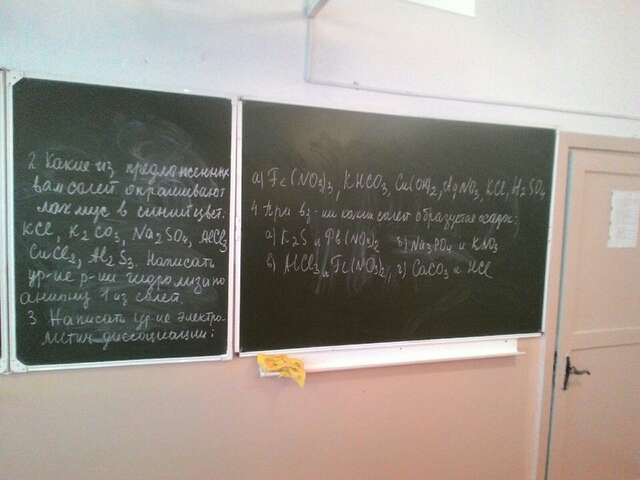 2 Какие из предложенных
вам солей окрашивают
лакмус в синий цвет:
KCl, K2CO3, Na2SO4, AlCl3
CuCl2, Al2S3. Написать
ур-ние р-ии гидролиза по
аниону 1 из солей.
3 Написать ур-ие электро-
литич. диссоциации:
а) Fe(NO3)3, KHCO3, Cu(OH)2, AgNO3, KCl, H2SO4
4 При вз-ии каких солей образуется осадок:
а) K2S и Pb(NO3)2 б) Na3PO4 и KNO3
в) AlCl3 и Fe(NO3)2, г) CaCO3 и HCl